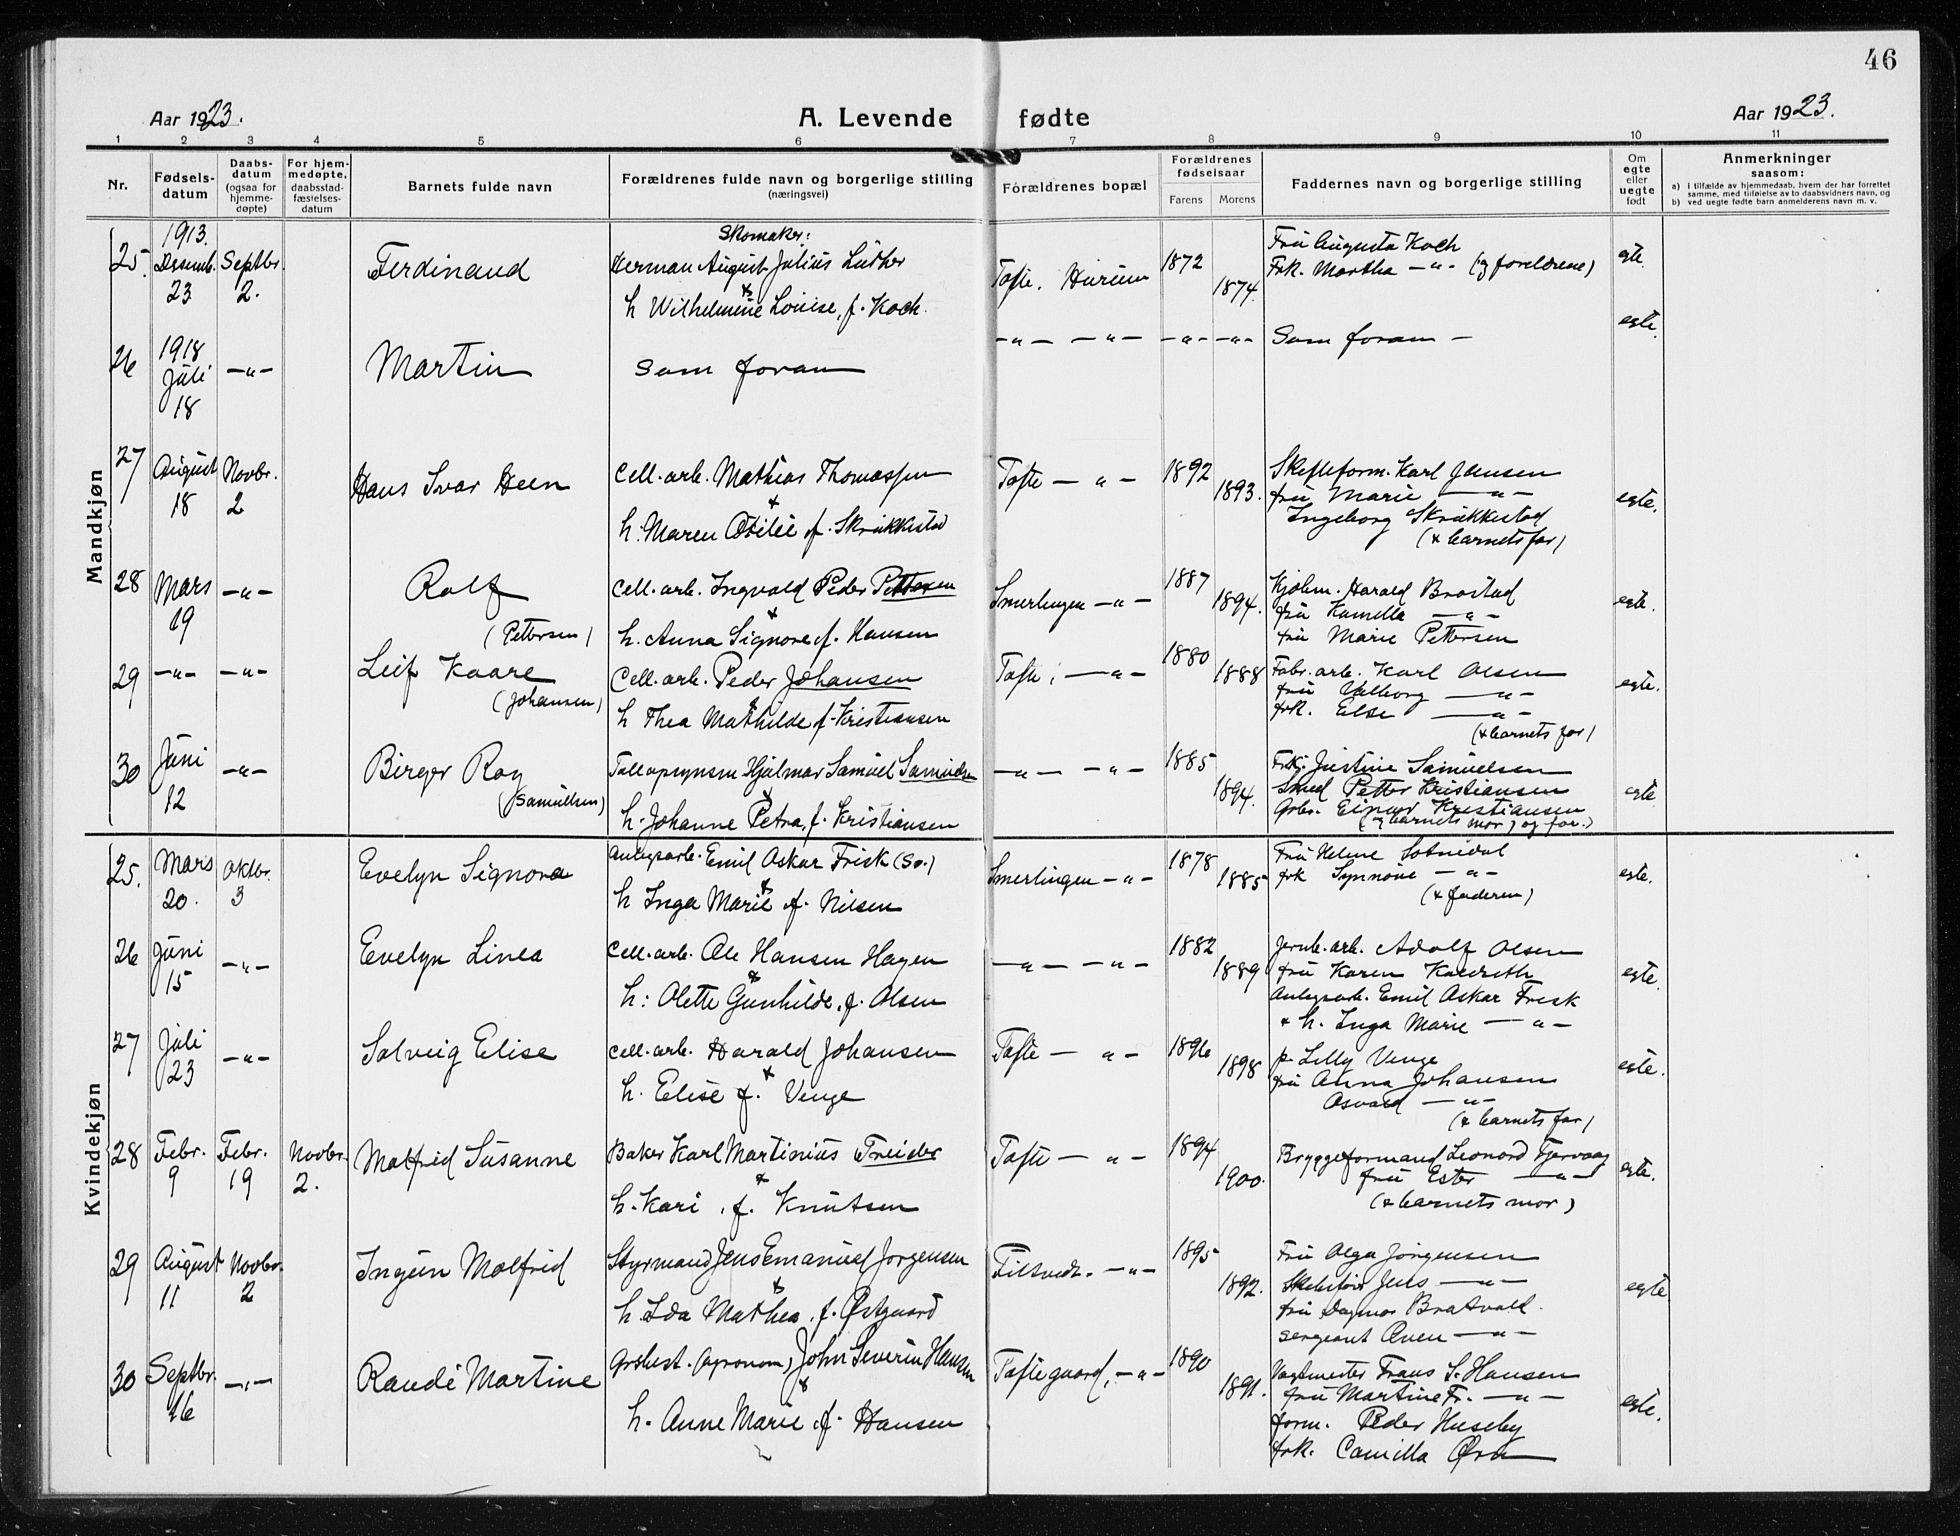 46
Aar 1923.
A. Levende fødte
Aar 1923.
1 2 3 4 5 6 7 8 9 10 11
Nr.
Fødsels-
datum
Daabs-
datum
(ogsaa for
hjemme-
døpte)
For hjem-
medøpte,
daabsstad-
fæstelses-
datum
Barnets fulde navn
Forældrenes fulde navn og borgerlige stilling
(næringsvei)
Forældrenes bopæl
Forældrenes
fødselsaar
Farens Morens
Faddernes navn og borgerlige stilling
Om
egte
eller
uegte
født
Anmerkninger
saasom:
a) i tilfælde av hjemmedaab, hvem der har forrettet
samme, med tilføielse av to daabsvidners navn, og
b) ved uegte fødte barn anmelderens navn m. v.
Mandkjøn
25. 1913. Desemb. 23 Septbr. 2. Ferdinand
Skomaker:
Herman August Julius Luther
&
h Wilhelmine Louise, f. Koch.
Tofte. Hurum 1872 1874.
Fru Augusta Koch
Frk. Martha —"— (og foreldrene)
egte.
26 1918 Juli 18 —"— Martin
som foran
—"— —"— —"— —"—
Som foran —
egte.
27 August 18 Novbr. 2 Hans Ivar Heen
Cell. arb. Mathias Thomassen
&
h. Maren Otilie f. Skrukkestad
Tofte —"— 1892 1893.
Skifteform. Karl Jensen
fru Marie —"—
Ingeborg Skrukkestad
(& barnets far)
egte.
28 Mars 19 —"— Rolf
(Pettersen)
Cell. arb. Ingvald Peder Pettersen
&
h. Anna Signore f. Hansen
Smerlingen —"— 1887 1894.
Harald Brostad
fru Kamilla —"—
fru Marie Pettersen
egte.
29 —"— —"— Leif Kaare
(Johansen)
Cell. arb. Peder Johansen
&
h Thea Mathilde f. Kristiansen
Tofte, —"— 1880 1888
Fabr. arb. Karl Olsen
fru Valborg —"—
frk. Else —"—
(& barnets far)
egte.
30 Juni 12 —"— Birger Roy
(Samuelsen)
Tollopsynsm Hjalmar Samuel Samuelsen
&
h. Johanne Petra, f. Kristiansen
—"— —"— 1885 1894.
Justine Samuelsen
Petter Kristiansen
Einar Kristiansen
(og barnets mor) og far.)
egte
Kvindekjøn
25. Mars 20. Oktbr. 3 Evelyn Signora
Anlegsarb. Emil Oskar Frisk (Sv.)
&
h Inga Marie f. Nilsen
Smerlingen —"— 1878 1885
Fru Helene
frk Synnøve —"—
(& faderen)
egte.
26 Juni 15 —"— Evelyn Linea
Cell. arb. Ole Hansen Hagen
&
h: Olette Gunhilde, f. Olsen
—"— —"— 1882 1889
Jernb. arb. Adolf Olsen
fru Karen
Anlegsarb. Emil Oskar Frisk
& h. Inga Marie —"—
egte.
27 Juli 23 —"— Solveig Elise
Cell. arb. Harald Johansen
&
h. Elise f. Venge
Tofte —"— 1896 1898
p. Lilly Venge
fru Anna Johansen
Osvald —"—
(& barnets far)
egte.
28 Febr. 9 Febr. 19 Novbr. 2. Molfrid Susanne
Baker Karl Martinius Treider
&
h. Kari, f. Knutsen
Tofte —"— 1894 1900.
Bryggeformand Leonard Fjervaag
fru Ester —"—
(& barnets mor)
egte.
29 August 11 Novbr. 2 Ingun Molfrid
Styrmand Jens Emanuel Jørgensen
&
h. Ida Mathea, f. Østgaard
Filtvedt. —"— 1895 1892.
Fru Olga Jørgensen
Jens —"—
fru Dagmar Bratvold.
sergeant —"—
egte
30 Septbr. 16 —"— Randi Martine
Grdbest. (Agronom) John Severin Hansen
&
h. Anne Marie f. Hansen
Toftegaard, —"— 1890 1891.
Vagtmester Frans S. Hansen
fru Martine Fr. —"—
form. Peder Huseby
frk. Camilla
egte.